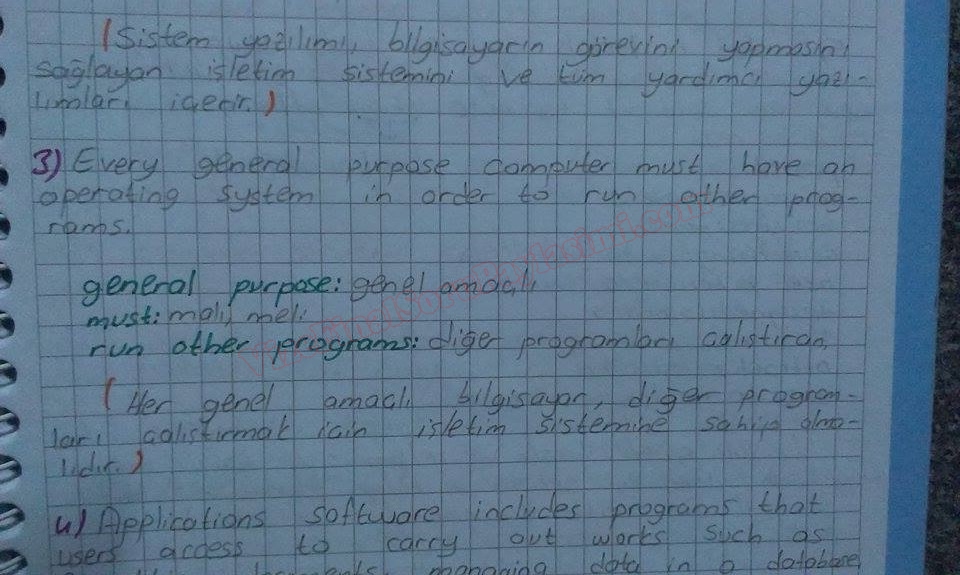 (Sistem yazılımı, bilgisayarın görevini yapmasını
sağlayan işletim sistemini ve tüm yardımcı yazı-
lımları içerir.)
3) Every general purpose computer must have an
operating system in order to run other prog-
rams.
general purpose: genel amaçlı
must: malı, meli
run other programs: diğer programları çalıştıran
(Her genel amaçlı bilgisayar, diğer program-
ları çalıştırmak için işletim sistemine sahip olma-
lıdır.)
4) Applications software includes programs that
users access to carry out works such as
managing data in a database,